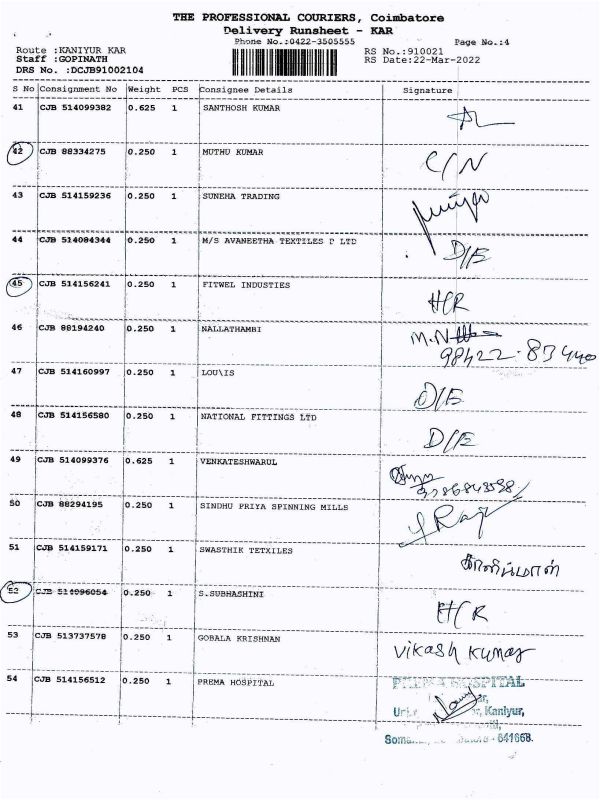 THE PROFESSIONAL COURIERS, Coimbatore
Delivery Runsheet - KAR
Phone No.:0422-3505555 Page No.:4
Route :KANIYUR KAR RS No.:910021
Staff :GOPINATH RS Date:22-Mar-2022
DRS No. :DCJB91002104
S No Consignment No Weight PCS Consignee Details Signature
41 CJB 514099382 0.625 1 SANTHOSH KUMAR
42 CJB 88334275 0.250 1 MUTHU KUMAR C/N
43 CJB 514159236 0.250 1 SUNEHA TRADING
44 CJB 514084344 0.250 1 M/S AVANEETHA TEXTILES P LTD D/E
45 CJB 514156241 0.250 1 FITWEL INDUSTIES H/R
46 CJB 88194240 0.250 1 NALLATHAMBI M.N
98422-83440
47 CJB 514160997 0.250 1 LOU\IS D/E
48 CJB 514156580 0.250 1 NATIONAL FITTINGS LTD D/E
49 CJB 514099376 0.625 1 VENKATESHWARUL
50 CJB 88294195 0.250 1 SINDHU PRIYA SPINNING MILLS
51 CJB 514159171 0.250 1 SWASTHIK TETXILES காளிம்மாள்
52 CJB 514096054 0.250 1 S.SUBHASHINI H/R
53 CJB 513737578 0.250 1 GOBALA KRISHNAN Vikash Kumar
54 CJB 514156512 0.250 1 PREMA HOSPITAL PREMA HOSPITAL
Kaniyur,
641668.